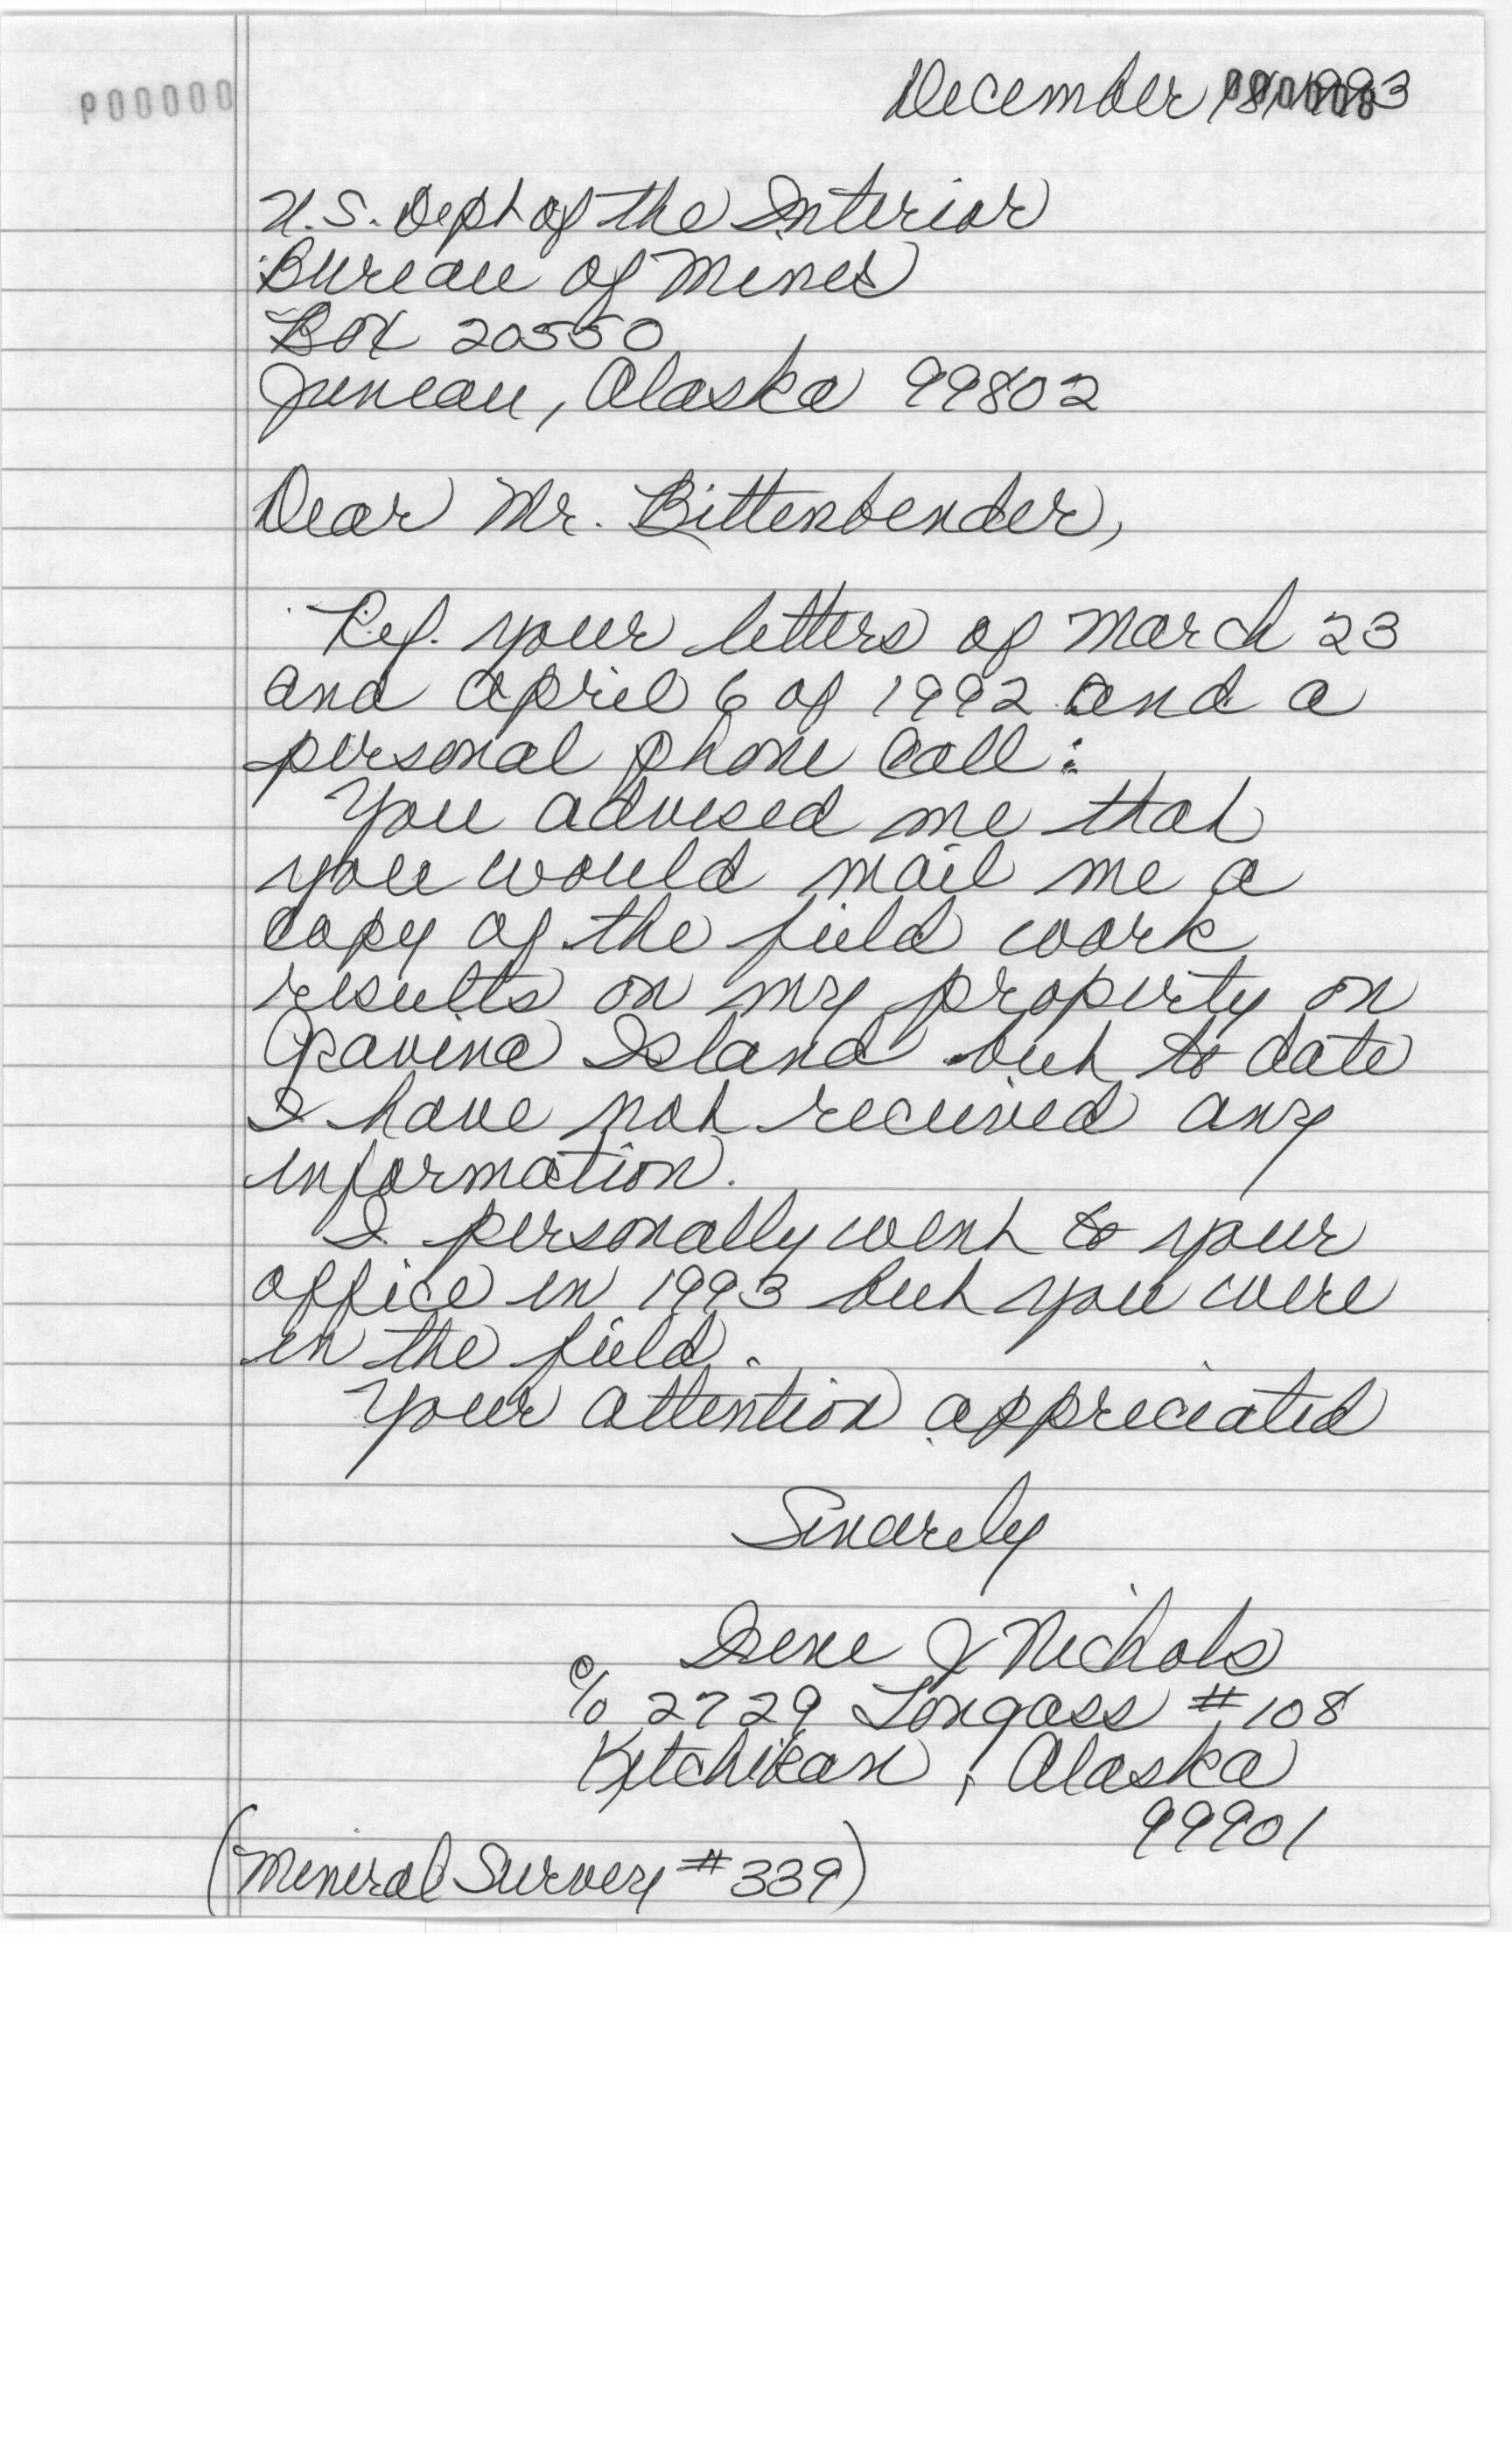 P00000
December 18, 1993
U.S. Dept of the Interior
Bureau of Mines
Box 20550
Juneau, Alaska 99802
Dear Mr. Bittenbender,
Ref. your letters of March 23
and April 6 of 1992 and a
personal phone call:
You advised me that
you would mail me a
copy of the field work
results on my property on
Gravina Island but to date
I have not received any
information.
I personally went to your
office in 1993 but you were
in the field.
Your attention appreciated
Sincerely
Irene J Nichols
c/o 2729 Tongass #108
Ketchikan, Alaska
99901
(Mineral Survey #339)